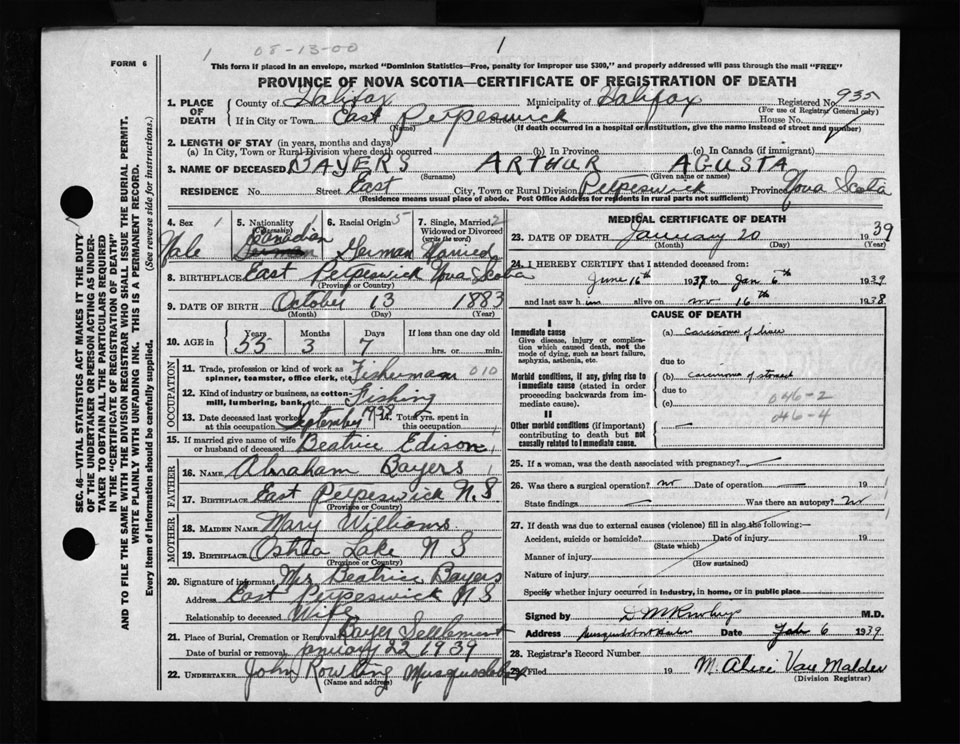 1 08-13-00 1
FORM 6
This form if placed in an envelope, marked "Dominion Statistics—Free, penalty for improper use $300," and properly addressed will pass through the mail "FREE"
PROVINCE OF NOVA SCOTIA—CERTIFICATE OF REGISTRATION OF DEATH
SEC. 46—VITAL STATISTICS ACT MAKES IT THE DUTY
OF THE UNDERTAKER OR PERSON ACTING AS UNDER-
TAKER TO OBTAIN ALL THE PARTICULARS REQUIRED
IN THE "CERTIFICATE OF REGISTRATION OF DEATH"
AND TO FILE THE SAME WITH THE DIVISION REGISTRAR WHO SHALL ISSUE THE BURIAL PERMIT.
WRITE PLAINLY WITH UNFADING INK. THIS IS A PERMANENT RECORD.
Every item of information should be carefully supplied. (See reverse side for instructions.)
1. PLACE OF DEATH
County of Halifax Municipality of Halifax Registered No. 935
(For use of Registrar General only)
If in City or Town East Petpeswick Street House No.
(Name) (If death occurred in a hospital or institution, give the name instead of street and number)
2. LENGTH OF STAY (in years, months and days)
(a) In City, Town or Rural Division where death occurred (b) In Province (c) In Canada (if immigrant)
3. NAME OF DECEASED BAYERS ARTHUR AGUSTA
(Surname) (Given name or names)
RESIDENCE No. Street East City, Town or Rural Division Petpeswick Province Nova Scotia
(Residence means usual place of abode. Post Office Address for residents in rural parts not sufficient)
4. Sex 1 5. Nationality 1 6. Racial Origin 5 7. Single, Married 2
(Citizenship) Widowed or Divorced
(write the word)
Male Canadian German Married
8. BIRTHPLACE East Petpeswick Nova Scotia
(Province or Country)
9. DATE OF BIRTH October 13 1883
(Month) (Day) (Year)
10. AGE in Years Months Days If less than one day old
55 3 7 hrs. or min.
OCCUPATION
11. Trade, profession or kind of work as Fisherman 010
spinner, teamster, office clerk, etc.
12. Kind of industry or business, as cotton- Fishing
mill, lumbering, bank, etc.
13. Date deceased last worked September 1938 14. Total yrs. spent in
at this occupation this occupation
15. If married give name of wife Beatrice Edison
or husband of deceased
FATHER
16. NAME Abraham Bayers
17. BIRTHPLACE East Petpeswick N.S
(Province or Country)
MOTHER
18. MAIDEN NAME Mary Williams
19. BIRTHPLACE Ostrea Lake N S
(Province or Country)
20. Signature of informant Mrs Beatrice Bayers
Address East Petpeswick N S
Relationship to deceased Wife
21. Place of Burial, Cremation or Removal Bayer Settlement
Date of burial or removal January 22 1939
22. UNDERTAKER John Rowling Musquodoboit
(Name and address)
MEDICAL CERTIFICATE OF DEATH
23. DATE OF DEATH January 20 1939
(Month) (Day) (Year)
24. I HEREBY CERTIFY that I attended deceased from:
June 16th 1937 to Jan 6th 1939
and last saw him alive on nov 16th 1938
CAUSE OF DEATH
I
Immediate cause
Give disease, injury or complica-
tion which caused death, not the
mode of dying, such as heart failure,
asphyxia, asthenia, etc.
(a) carcinoma of liver
due to
Morbid conditions, if any, giving rise to
immediate cause (stated in order
proceeding backwards from im-
mediate cause).
(b) carcinoma of stomach
due to
(c)
046-2
046-4
II
Other morbid conditions (if important)
contributing to death but not
causally related to immediate cause.
25. If a woman, was the death associated with pregnancy?
26. Was there a surgical operation? no Date of operation 19
State findings Was there an autopsy? no
27. If death was due to external causes (violence) fill in also the following:—
Accident, suicide or homicide? Date of injury 19
(State which)
Manner of injury
(How sustained)
Nature of injury
Specify whether injury occurred in industry, in home, or in public place
Signed by M.D.
Address Musquodoboit Harbor Date Feb 6 1939
28. Registrar's Record Number
29. Filed 19 M. Alice Van Malder
(Division Registrar)